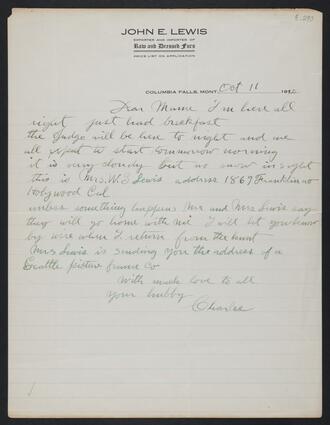 E.293
JOHN E. LEWIS
EXPORTER AND IMPORTER OF
Raw and Dressed Furs
PRICE LIST ON APPLICATION
COLUMBIA FALLS, MONT. Oct 11 19
Dear Mame I'm here all
right just had breakfast
the Judge will be here to night and we
all expect to start tomorrow morning
it is very cloudy but no snow in sight
this is Mrs. W. I Lewis address 1869 Franklin
Holywood Cal
unless something happens Mr and Mrs Lewis say
they will go home with me I will let you know
by wire when I return from the hunt
Mrs Lewis is sending you the address of a
Seattle picture frame Co
With much love to all
your hubby
Charlie